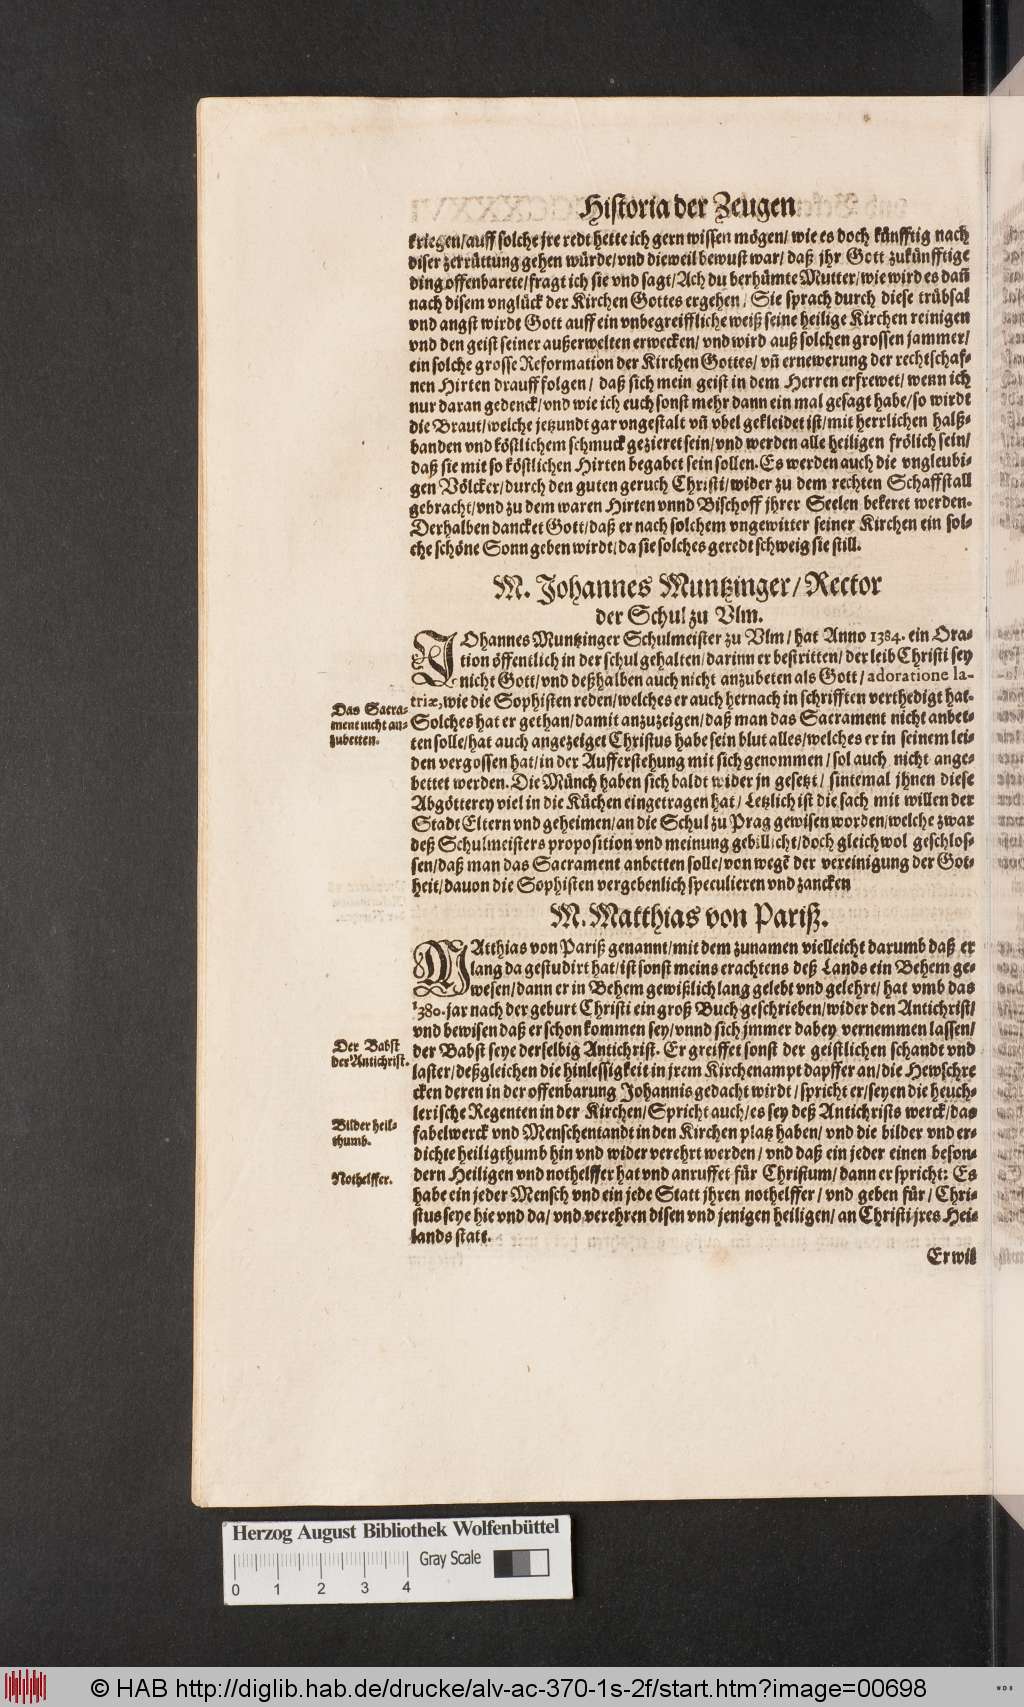 Historia der Zeugen
kriegen/auff solche jre redt hette ich gern wissen mögen/ wie es doch künfftig nach
diser zerrüttung gehen würde/vnd dieweil bewust war/ daß jhr Gott zukünfftige
ding offenbarete/fragt ich sie vnd sagt/Ach du berhümte Mutter/wie wird es dañ
nach disem vnglück der Kirchen Gottes ergehen/ Sie sprach durch diese trübsal
vnd angst wirdt Gott auff ein vnbegreiffliche weiß seine heilige Kirchen reinigen
vnd den geist seiner außerwelten erwecken/ vnd wird auß solchen grossen jammer/
ein solche grosse Reformation der Kirchen Gottes/ vñ ernewerung der rechtschaf-
nen Hirten drauff folgen/ daß sich mein geist in dem Herren erfrewet/ wenn ich
nur daran gedenck/vnd wie ich euch sonst mehr dann ein mal gesagt habe/so wirdt
die Braut/welche jetzundt gar vngestalt vñ vbel gekleidet ist/mit herrlichen halß-
banden vnd köstlichem schmuck gezieret sein/vnd werden alle heiligen frölich sein/
daß sie mit so köstlichen Hirten begabet sein sollen. Es werden auch die vngleubi-
gen Völcker/durch den guten geruch Christi/wider zu dem rechten Schaffstall
gebracht/vnd zu dem waren Hirten vnnd Bischoff jhrer Seelen bekeret werden.
Derhalben dancket Gott/daß er nach solchem vngewitter seiner Kirchen ein sol-
che schöne Sonn geben wirdt/da sie solches geredt schweig sie still.
M. Johannes Muntzinger/Rector
der Schul zu Vlm.
JOhannes Muntzinger Schulmeister zu Vlm/ hat Anno 1384. ein Ora-
tion öffentlich in der schul gehalten/darinn er bestritten/ der leib Christi sey
nicht Gott/vnd deßhalben auch nicht anzubeten als Gott/adoratione la-
triæ, wie die Sophisten reden/welches er auch hernach in schrifften verthedigt hat.
Das Sacra-
ment nicht an-
zubetten.
Solches hat er gethan/damit anzuzeigen/daß man das Sacrament nicht anbet-
ten solle/hat auch angezeiget Christus habe sein blut alles/welches er in seinem lei-
den vergossen hat/in der Aufferstehung mit sich genommen/sol auch nicht ange-
bettet werden. Die Münch haben sich baldt wider jn gesetzt/ sintemal jhnen diese
Abgötterey viel in die Küchen eingetragen hat/ Letzlich ist die sach mit willen der
Stadt Eltern vnd geheimen/an die Schul zu Prag gewisen worden/welche zwar
deß Schulmeisters proposition vnd meinung gebillicht/doch gleichwol geschlos-
sen/daß man das Sacrament anbetten solle/von wegẽ der vereinigung der Got-
heit/dauon die Sophisten vergebenlich speculieren vnd zancken
M. Matthias von Pariß.
MAtthias von Pariß genannt/mit dem zunamen vielleicht darumb daß er
lang da gestudirt hat/ist sonst meins erachtens deß Lands ein Behem ge-
wesen/dann er in Behem gewißlich lang gelebt vnd gelehrt/ hat vmb das
1380. jar nach der geburt Christi ein groß Buch geschrieben/wider den Antichrist/
vnd bewisen daß er schon kommen sey/vnnd sich jmmer dabey vernemmen lassen/
Der Babst
der Antichrist.
der Babst seye derselbig Antichrist. Er greiffet sonst der geistlichen schandt vnd
laster/deßgleichen die hinlessigkeit in jrem Kirchenampt dapffer an/die Hewschre
cken deren in der offenbarung Johannis gedacht wirdt/spricht er/seyen die heuch-
lerische Regenten in der Kirchen/Spricht auch/es sey deß Antichrists werck/das
Bilder heil-
thumb.
fabelwerck vnd Menschentandt in den Kirchen platz haben/ vnd die bilder vnd er-
dichte heiligthumb hin vnd wider verehrt werden/ vnd daß ein jeder einen beson-
Nothelffer.
dern Heiligen vnd nothelffer hat vnd anruffet für Christum/dann er spricht: Es
habe ein jeder Mensch vnd ein jede Statt jhren nothelffer/ vnd geben für/ Chri-
stus seye hie vnd da/ vnd verehren disen vnd jenigen heiligen/ an Christi jres Hei-
lands statt.
Er wil
Herzog August Bibliothek Wolfenbüttel
Gray Scale
0 1 2 3 4
© HAB http://diglib.hab.de/drucke/alv-ac-370-1s-2f/start.htm?image=00698